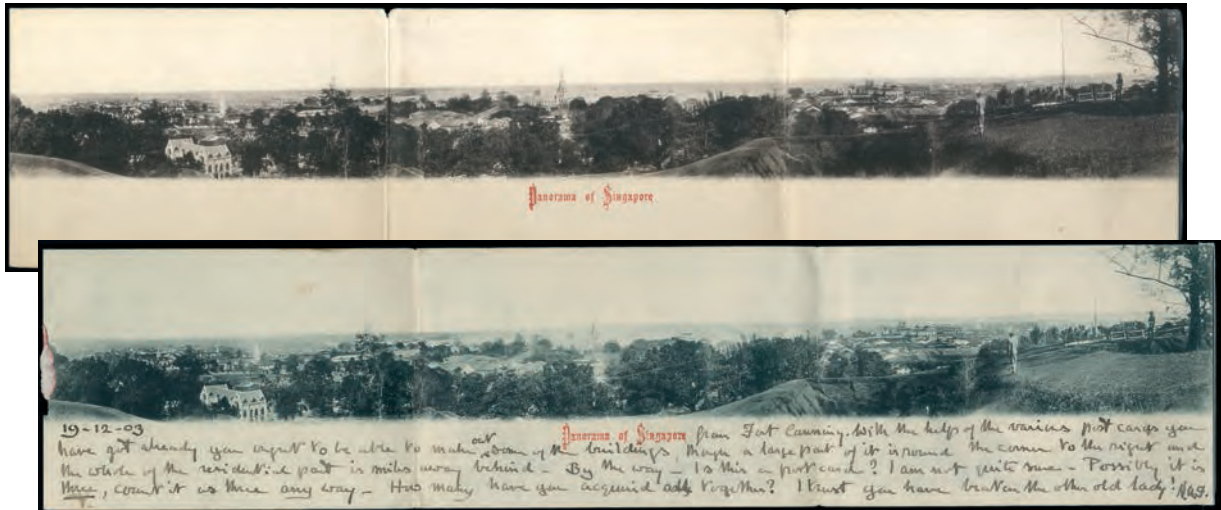 Panorama of Singapore
19-12-03
Panorama of Singapore from Fort Canning. With the help of the various post cards you
have got already you ought to be able to make out some of the buildings, though a large part of it is round the corner to the right and
the whole of the residential part is miles away behind - By the way - Is this a post card? I am not quite sure - Possibly it is
three, count it as three any way - How many have you acquired altogether? I trust you have beaten the other old lady!